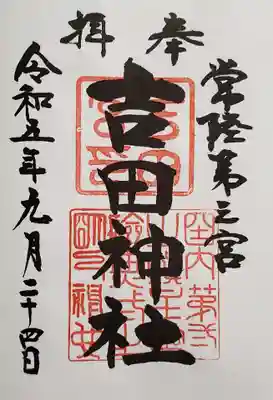 奉拝
常陸第三宮
吉田神社
令和五年九月二十四日